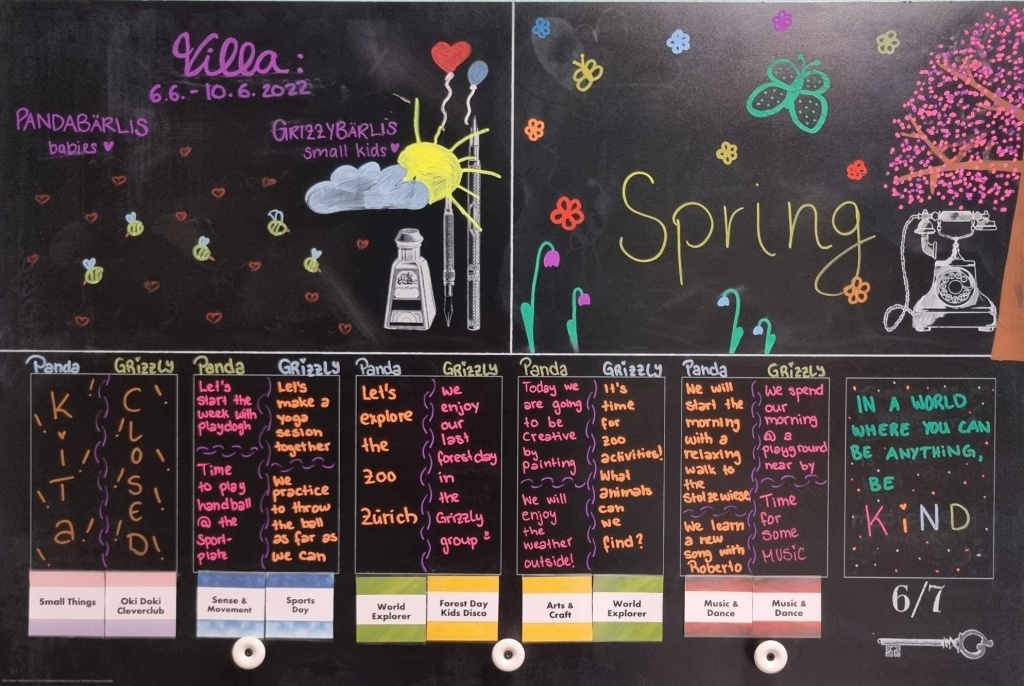 Villa:
6.6. - 10.6.2022
PANDABÄRLIS
babies
GRIZZYBÄRLIS
small kids
Spring
Panda
K
i
T
a
Small Things
GRizzLY
C
L
O
S
E
D
Oki Doki
Cleverclub
Panda
Let's
start the
week with
playdogh
Time
to play
handball
@ the
Sport-
platz
Sense &
Movement
GRIZZLY
Let's
make a
yoga
sesion
together
We
practice
to throw
the ball
as far as
we can
Sports
Day
Panda
Let's
explore
the
zoo
Zürich
World
Explorer
GRizzLY
We
enjoy
our
last
forestday
in
the
Grizzly
group
Forest Day
Kids Disco
Panda
Today we
are going
to be
Creative
by
painting
We will
enjoy
the
weather
outside!
Arts &
Craft
GRIZZLY
It's
time
for
zoo
activities!
What
animals
can
we
find?
World
Explorer
Panda
We will
start the
morning
with a
relaxing
walk to
the
Stolzewiese
We learn
a new
song with
Roberto
Music &
Dance
GRizzLY
We spend
our
morning
@ a
playground
near by
Time
for
some
MUSIC
Music &
Dance
IN A WORLD
WHERE YOU CAN
BE ANYTHING,
BE
KiND
6/7